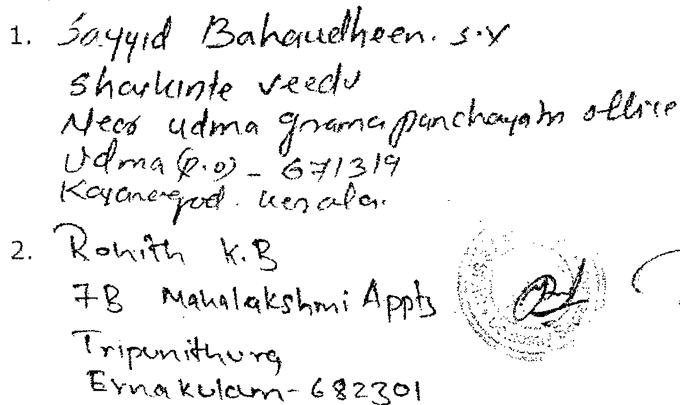 1. Sayyid Bahaudheen. S.Y
Sharkinte veedu
Near udma grama panchayath office
Udma (P.O) - 671319
Kasaragod. Kerala.
2. Rohith K.B
7B Mahalakshmi Appts
Tripunithura
Ernakulam - 682301